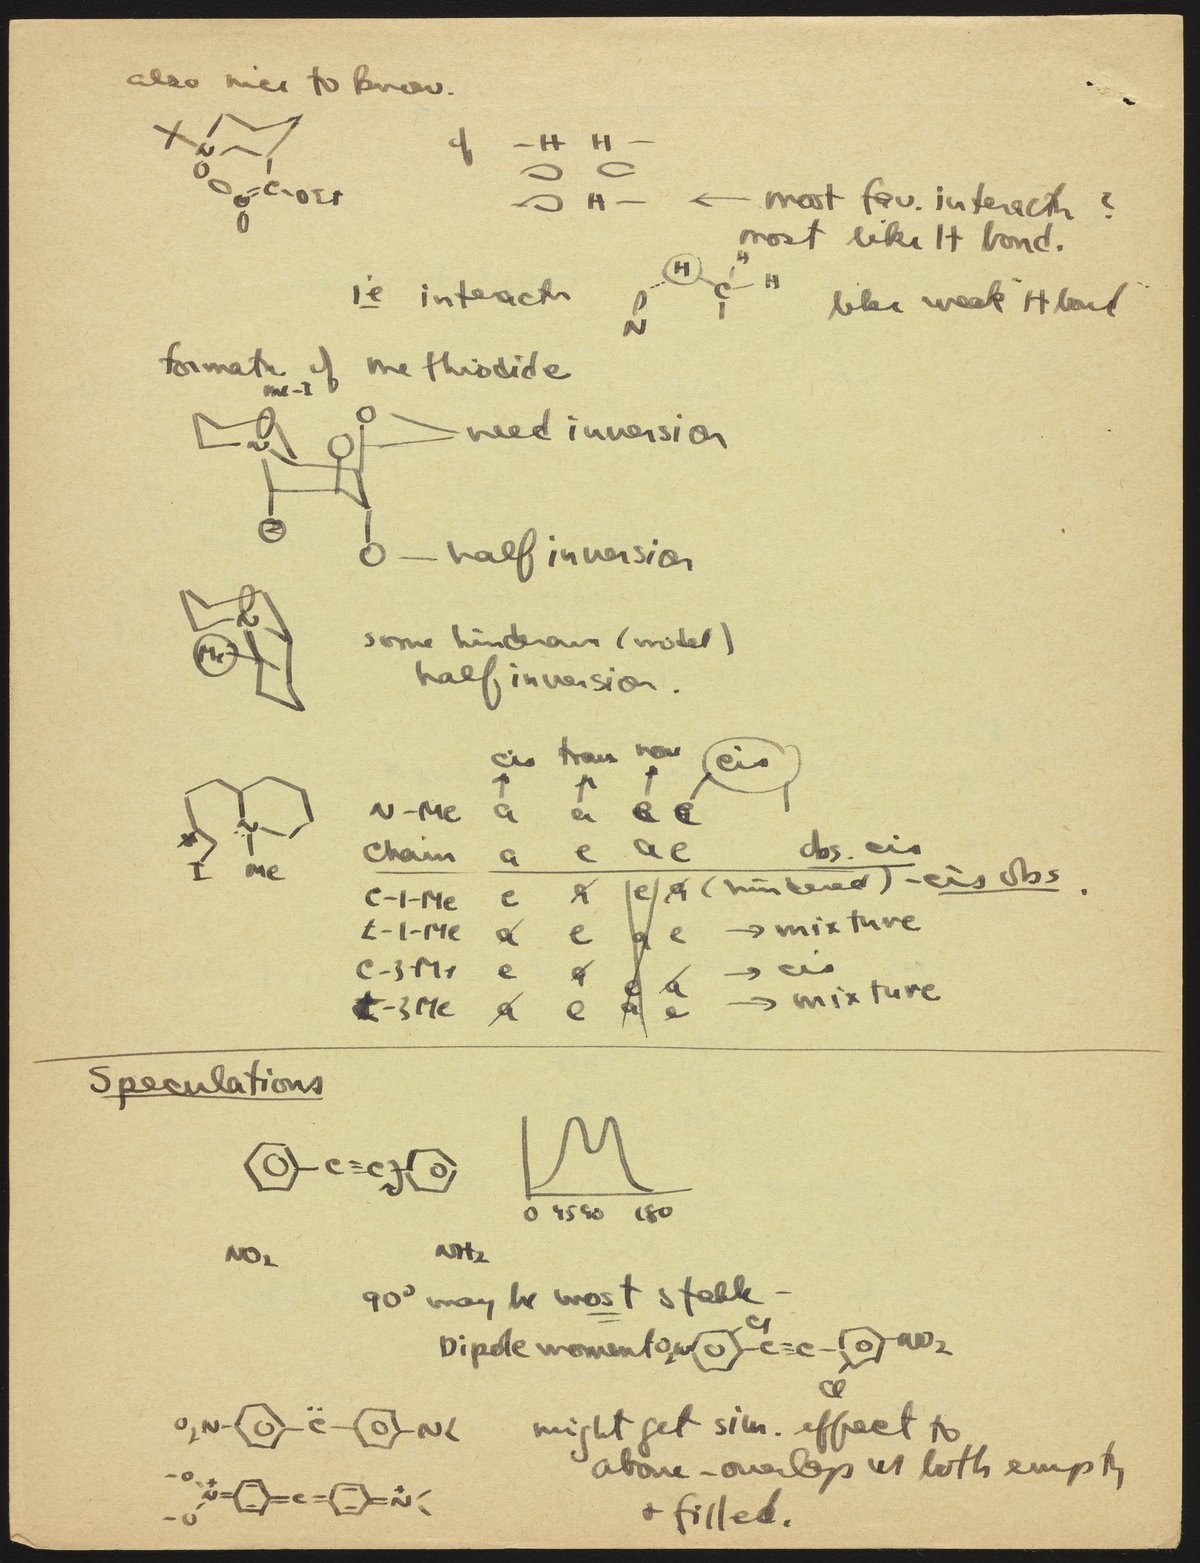 also nice to know.
X N
C-OEt
of -H H-
H- ← most fav. interactn ?
most like H bond.
ie interactn N H C H H like weak "H bond"
formatn of methiodide
Me-I
N need inversion
half inversion
N
Me some hindrance (model)
half inversion.
cis trans non cis
N-Me a a e e
Chain a e a e obs. cis
C-1-Me e a e a (hindered) - cis obs.
t-1-Me a e a e → mixture
C-3-Me e a e a → cis
t-3Me a e a e → mixture
N
I Me
Speculations
C≡C
0 45 90 180
NO2 NH2
90° may be most stable -
Dipole moment O2N Cl C≡C NO2
Cl
O2N C N< might get sim. effect to
above - overlap w both empty
-O N+ =C= N+<
-O + filled.